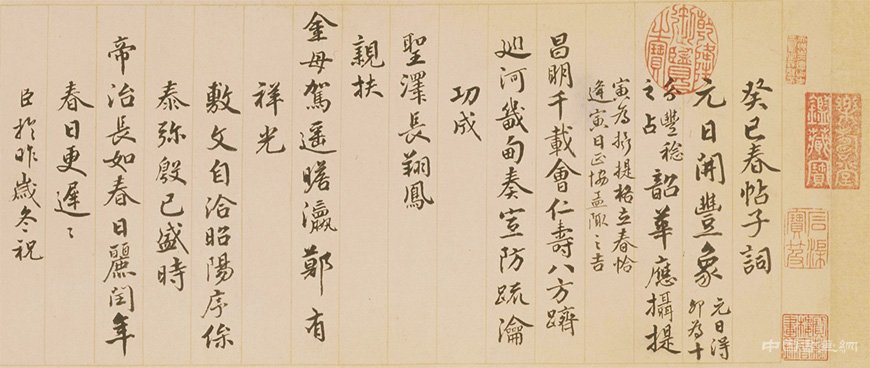 癸巳春帖子詞
元日開豐象
元日得
卯為十
分豐稔
之占
韶華應攝提
寅為攝提格立春恰
逢寅日正協孟陬之吉
昌明千載會仁壽八方躋
巡河畿甸奏宣防疏瀹
功成
聖澤長翔鳳
親扶
金母駕遥瞻瀛鄭有
祥光
敷文自洽昭陽序保
泰弥殷已盛時
帝治長如春日麗閏年
春日更遲〻
臣於昨歲冬祝
樂壽堂
鑑藏寶